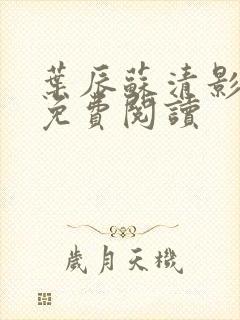 葉辰蘇清影
免費閱讀
歲月天機